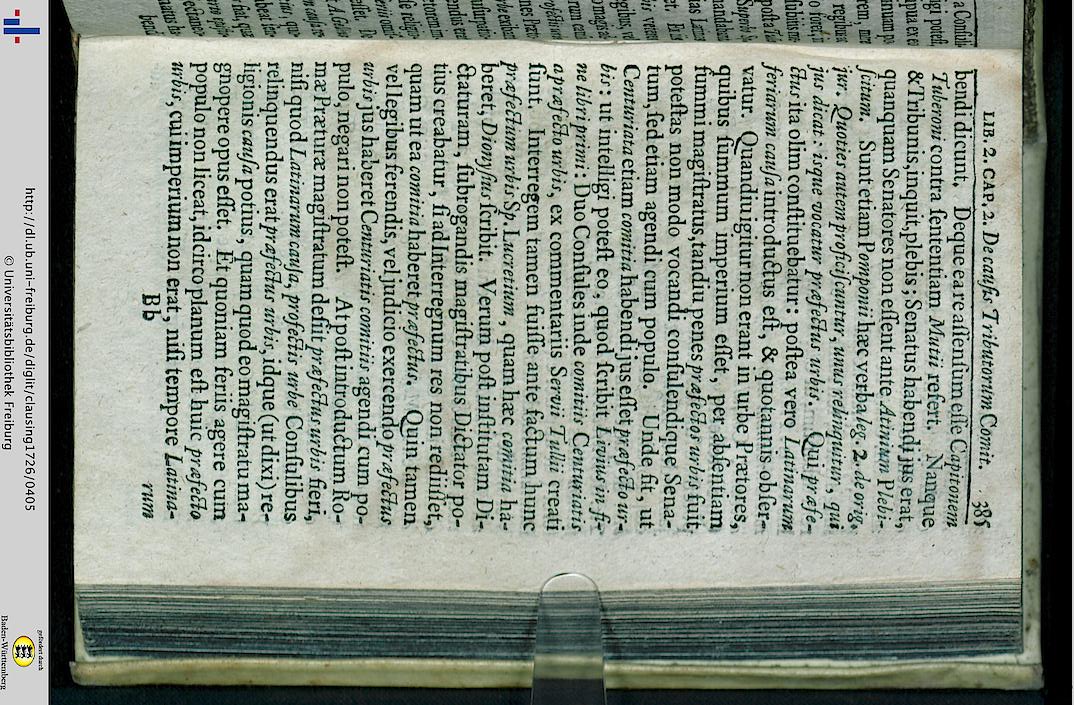 LIB. 2. CAP. 2. De causis Tributorum Comit. 385
bendi dicunt. Deque ea re assensum esse Capitonem
Tuberoni contra sententiam Mutii refert. Nanque
& Tribunis, inquit, plebis; Senatus habendi jus erat,
quanquam Senatores non essent ante Atinium Plebi-
scitum. Sunt etiam Pomponii hæc verba leg. 2. de orig.
jur. Quoties autem proficiscuntur, unus relinquitur, qui
jus dicat: isque vocatur præfectus urbis. Qui præfe-
ctus ita olim constituebatur: postea vero Latinarum
feriarum causa introductus est, & quotannis obser-
vatur. Quandiu igitur non erant in urbe Prætores,
quibus summum imperium esset, per absentiam
summi magistratus, tandiu penes præfectos urbis fuit,
potestas non modo vocandi consulendique Sena-
tum, sed etiam agendi cum populo. Unde fit, ut
Centuriata etiam comitia habendi jus esset præfecto ur-
bis: ut intelligi potest eo, quod scribit Livius in fi-
ne libri primi: Duo Consules inde comitiis Centuriatis
a præfecto urbis, ex commentariis Servii Tullii creati
sunt. Interregem tamen fuisse ante factum hunc
præfectum urbis Sp. Lucretium, quam hæc comitia ha-
beret, Dionysius scribit. Verum post institutam Di-
ctaturam, subrogandis magistratibus Dictator po-
tius creabatur, si ad Interregnum res non rediisset,
quam ut ea comitia haberet præfectus. Quin tamen
vel legibus ferendis, vel judicio exercendo præfectus
urbis jus haberet Centuriatis comitiis agendi cum po-
pulo, negari non potest. At post introductum Ro-
mæ Præturæ magistratum desiit præfectus urbis fieri,
nisi quod Latinarum causa, profectis urbe Consulibus
relinquendus erat præfectus urbis, idque (ut dixi) re-
ligionis causa potius, quam quod eo magistratu ma-
gnopere opus esset. Et quoniam feriis agere cum
populo non liceat, idcirco planum est huic præfecto
urbis, cui imperium non erat, nisi tempore Latina-
Bb rum
http://dl.ub.uni-freiburg.de/diglit/clausing1726/0405
© Universitätsbibliothek Freiburg
gefördert durch
Baden-Württemberg